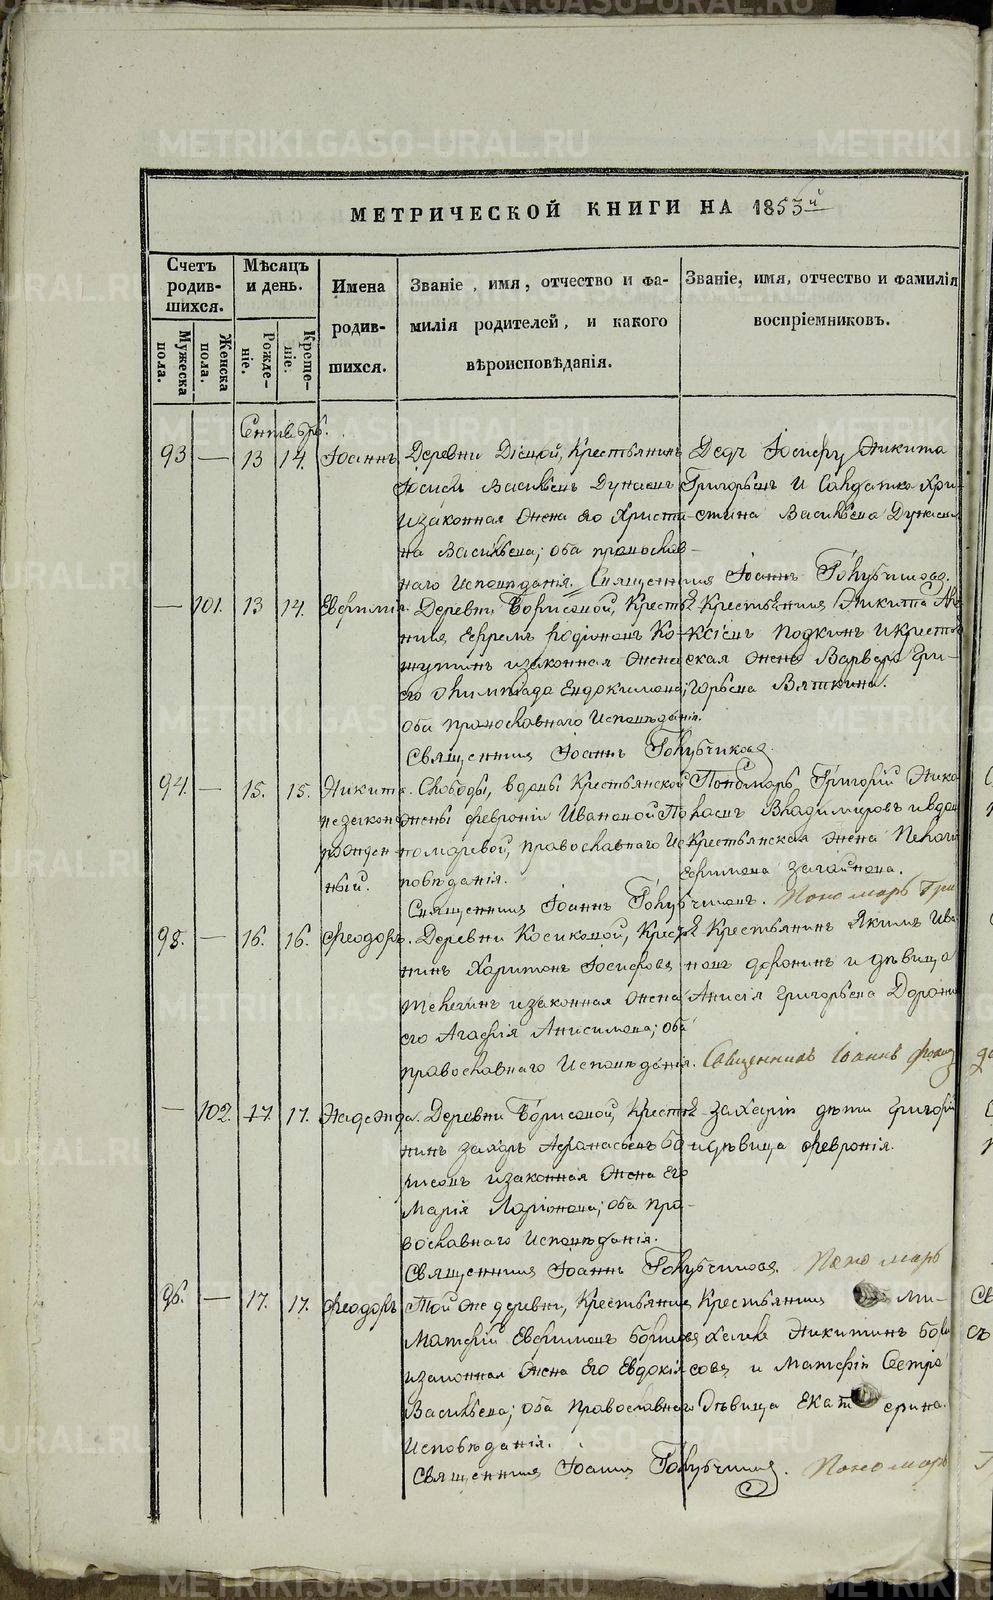 METRIKI.GASO-URAL.RU
МЕТРИЧЕСКОЙ КНИГИ НА 1853й
Счетъ родив-шихся.
Мужеска пола.
Женска пола.
Мѣсяцъ и день.
Рожде-ніе.
Креще-ніе.
Имена родив-шихся.
Званіе, имя, отчество и фа-
милія родителей, и какого
вѣроисповѣданія.
Званіе, имя, отчество и фамилія
воспріемниковъ.
Сентябрь.
93 — 13 14. Іоаннъ
Деревни Крестьянинъ
Васильевъ Дунаевъ
и законная жена его Христи-
на Васильева; оба православ-
наго исповѣданія. Священникъ Іоаннъ Голубчиковъ.
Дѣдъ Іосифу Никита
Григорьевъ и Солдатка Хри-
стина Васильева Дунаева
— 101. 13 14. Евфимія.
Деревни Борисовой, Крестья-
нинъ Ефремъ Родіоновъ Ко-
жутинъ и законная жена
его Олимпіада Евдокимова;
оба православнаго исповѣданія.
Священникъ Іоаннъ Голубчиковъ.
Крестьянинъ Никита
и крестьян-
ская жена Варвара Гри-
горьева Вяткина.
94. — 15. 15. Никита.
незаконно-
рожден-
ный.
Слободы, вдовы Крестьянской
жены Февроніи Ивановой По-
номаревой, православнаго ис-
повѣданія.
Священникъ Іоаннъ Голубчиковъ. Пономарь Гри
Пономарь Григорій Нико-
лаевъ Владимировъ и вдова
Крестьянская жена
Ефимова
95. — 16. 16. Феодоръ.
Деревни Косиковой, Крестья-
нинъ Харитонъ Іосифовъ
Телегинъ и законная жена
его Агафія Анисимова; оба
православнаго исповѣданія. Священникъ Іоаннъ
Крестьянинъ Якимъ Ива-
новъ Доронинъ и дѣвица
Анисія Григорьева Дорони
— 102. 17 17. Надежда.
Деревни Борисовой, Крестья-
нинъ Захаръ Афанасьевъ Бо-
рисовъ и законная жена его
Марія Ларіонова; оба пра-
вославнаго исповѣданія.
Священникъ Іоаннъ Голубчиковъ. Пономарь
Захарія дѣти Григорій
и дѣвица Февронія.
96. — 17. 17. Феодоръ
Той же деревни, Крестьянинъ
Матфій Евфимовъ Борисовъ
и законная жена его Евдокія
Васильева; оба православнаго
исповѣданія.
Священникъ Іоаннъ Голубчиковъ. Пономарь
Крестьянинъ Ми-
Никитинъ Бори-
совъ и Матфія сестра
дѣвица Екатерина.